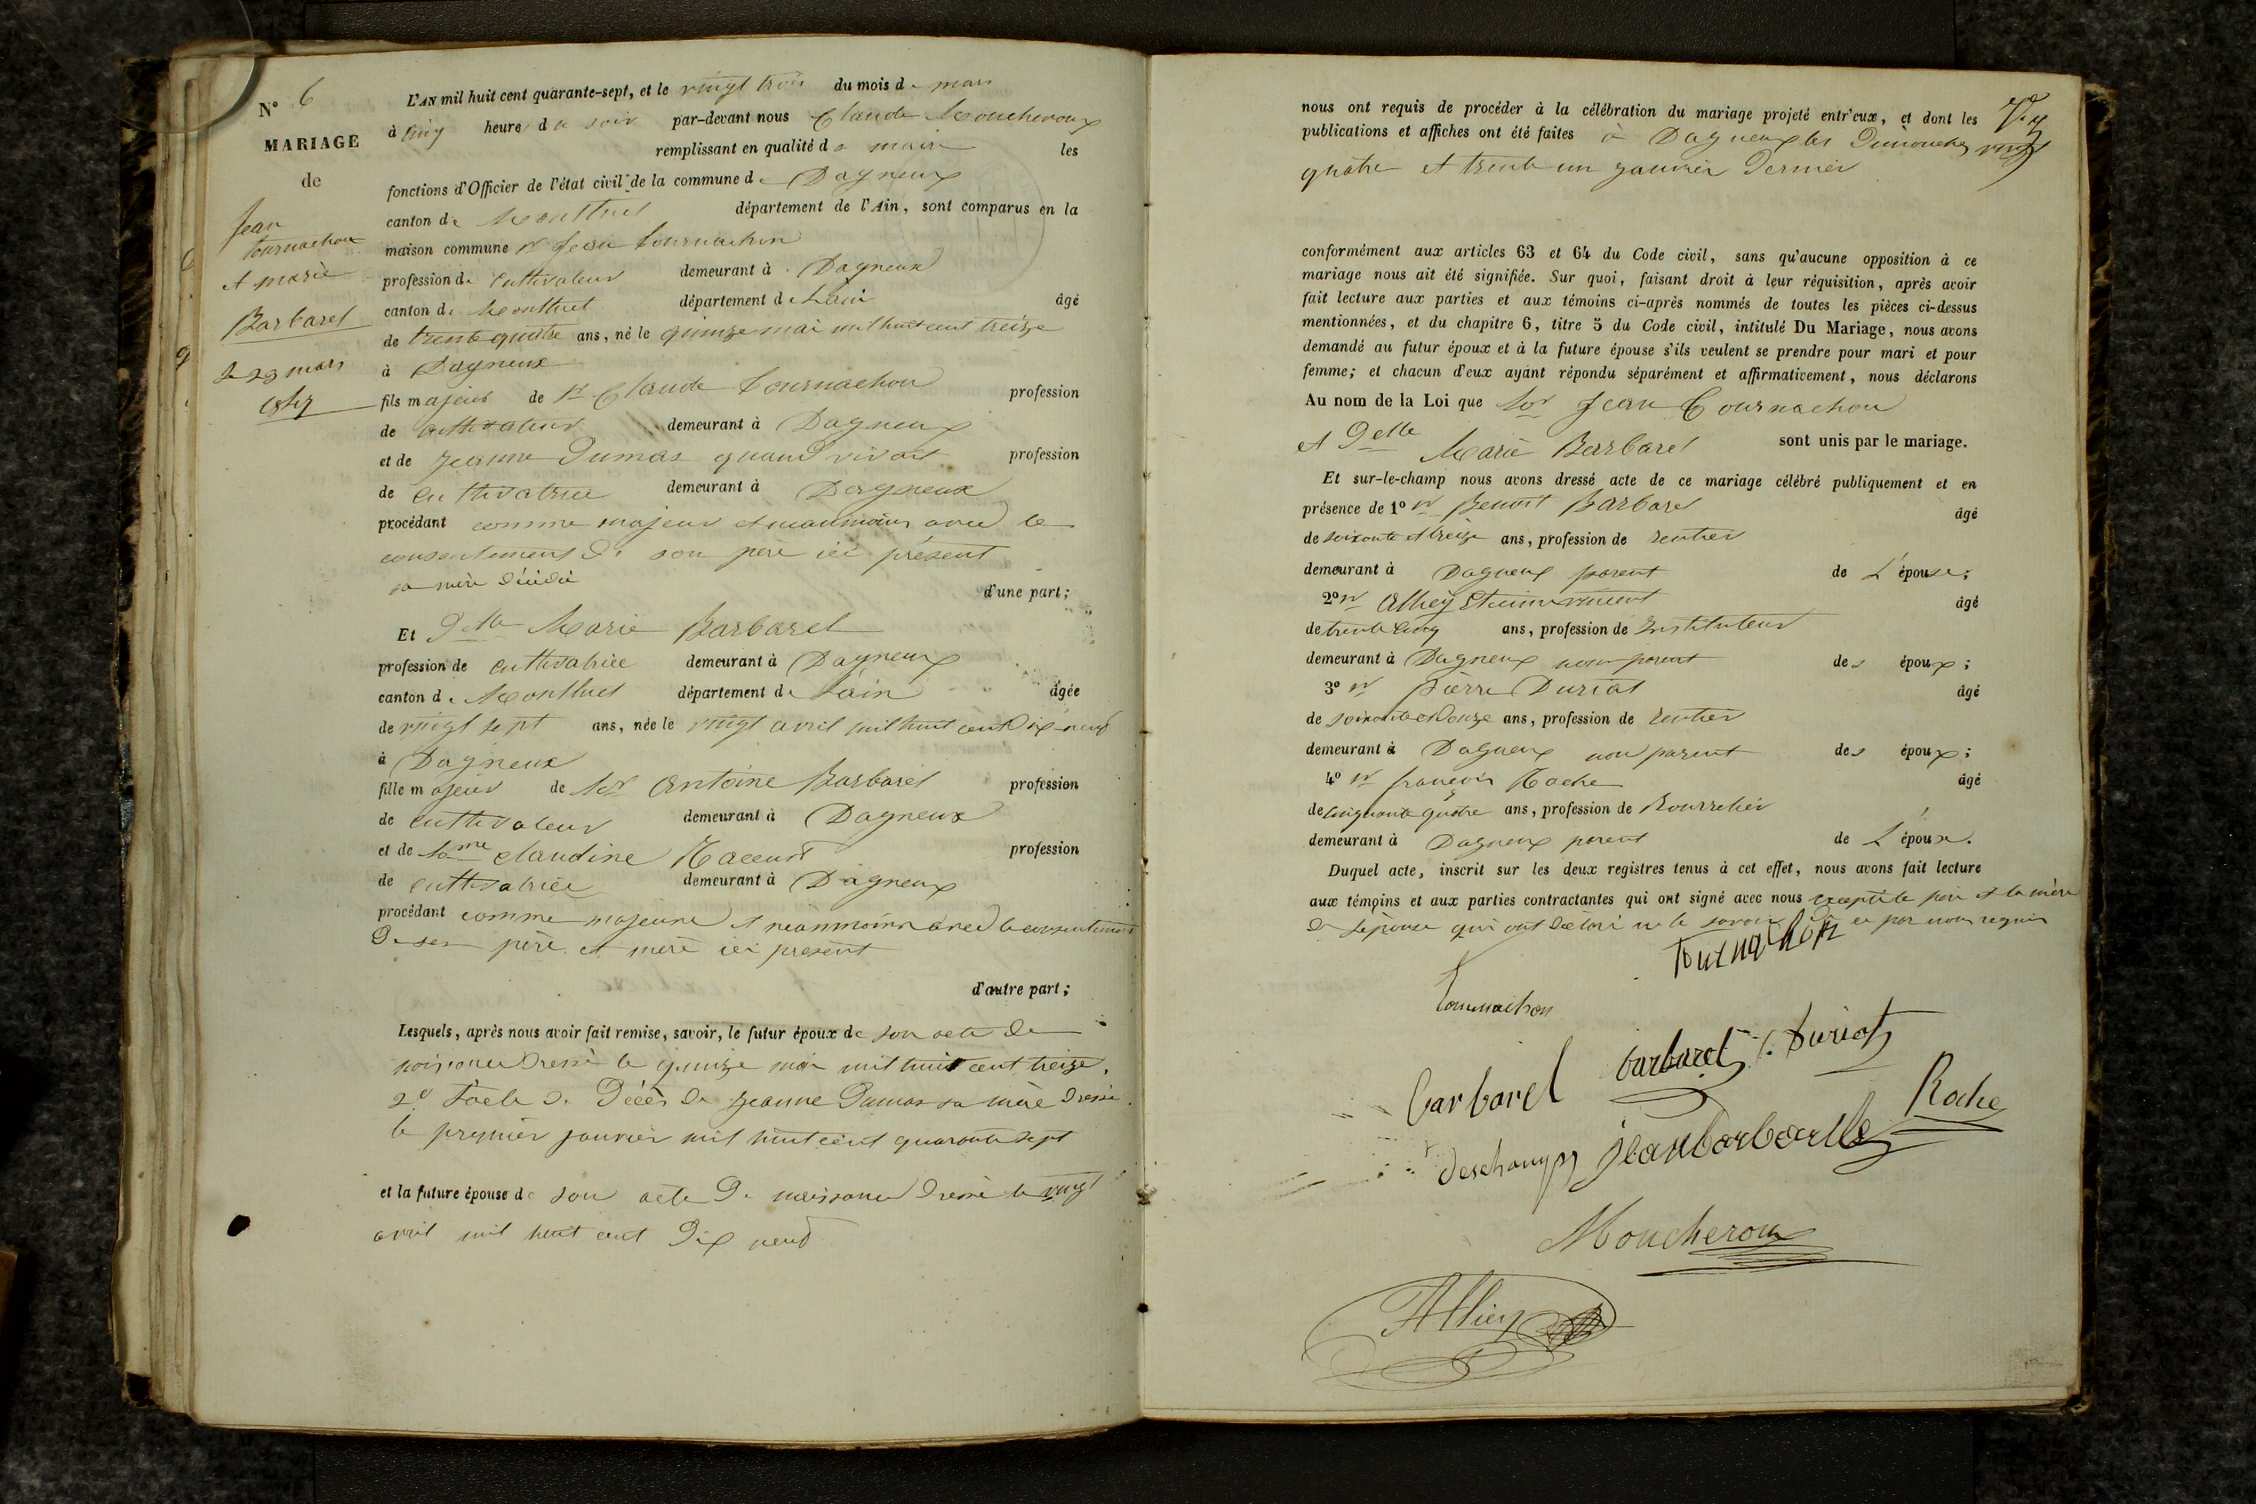 N° 6
MARIAGE
de
Jean
tournachon
et marie
Barbaret
le 23 mars
1847
L'AN mil huit cent quarante-sept, et le vingt trois du mois de mars
à cinq heures du soir par-devant nous Claude Moucheroux
remplissant en qualité de maire les
fonctions d'Officier de l'état civil de la commune de Dagneux
canton de Montluel département de l'Ain, sont comparus en la
maison commune sr Jean tournachon
profession de cultivateur demeurant à Dagneux
canton de Montluel département de Lain âgé
de trente quatre ans, né le quinze mai mil huit cent treize
à Dagneux
fils majeur de sr Claude tournachon profession
de cultivateur demeurant à Dagneux
et de Jeanne Dumas quand vivait profession
de cultivatrice demeurant à Dagneux
procédant comme majeur et neanmoins avec le
consentement de son père ici présent
sa mère décédée
d'une part;
Et Delle Marie Barbaret
profession de cultivatrice demeurant à Dagneux
canton de Montluel département de Lain âgée
de vingt sept ans, née le vingt avril mil huit cent dix neuf
à Dagneux
fille majeur de Sr Antoine Barbaret profession
de cultivateur demeurant à Dagneux
et de dame claudine profession
de cultivatrice demeurant à Dagneux
procédant comme majeure et neanmoins avec le consentement
de ses père et mère ici présent
d'autre part;
Lesquels, après nous avoir fait remise, savoir, le futur époux de son acte de
naissance dressé le quinze mai mil huit cent treize,
2° l'acte de Décès de Jeanne Dumas sa mère dressé
le premier janvier mil huit cent quarante sept
et la future épouse de son acte de naissance dressé le vingt
avril mil huit cent dix neuf
nous ont requis de procéder à la célébration du mariage projeté entr'eux, et dont les
publications et affiches ont été faites à Dagneux les Dimanches vingt
quatre et trente un janvier dernier
conformément aux articles 63 et 64 du Code civil, sans qu'aucune opposition à ce
mariage nous ait été signifiée. Sur quoi, faisant droit à leur réquisition, après avoir
fait lecture aux parties et aux témoins ci-après nommés de toutes les pièces ci-dessus
mentionnées, et du chapitre 6, titre 5 du Code civil, intitulé Du Mariage, nous avons
demandé au futur époux et à la future épouse s'ils veulent se prendre pour mari et pour
femme; et chacun d'eux ayant répondu séparément et affirmativement, nous déclarons
Au nom de la Loi que Sr Jean Tournachon
et Delle Marie Barbaret sont unis par le mariage.
Et sur-le-champ nous avons dressé acte de ce mariage célébré publiquement et en
présence de 1° sr Benoit Barbaret âgé
de soixante et treize ans, profession de rentier
demeurant à Dagneux parent de L'épouse;
2° sr Alhey Etienne vincent âgé
de trente cinq ans, profession de Instituteur
demeurant à Dagneux non parent des époux;
3° sr pierre Duriat âgé
de soixante et douze ans, profession de rentier
demeurant à Dagneux non parent des époux;
4° sr françois Roche âgé
de cinquante quatre ans, profession de Bourrelier
demeurant à Dagneux parent de L'époux.
Duquel acte, inscrit sur les deux registres tenus à cet effet, nous avons fait lecture
aux témoins et aux parties contractantes qui ont signé avec nous excepté le père et la mère
de l'épouse qui ont déclaré ne le savoir de ce par nous requis
tournachon
tournachon
barbaret Duriat
barbaret
Roche
deschamps jean barbaret
Moucheroux
Alhey